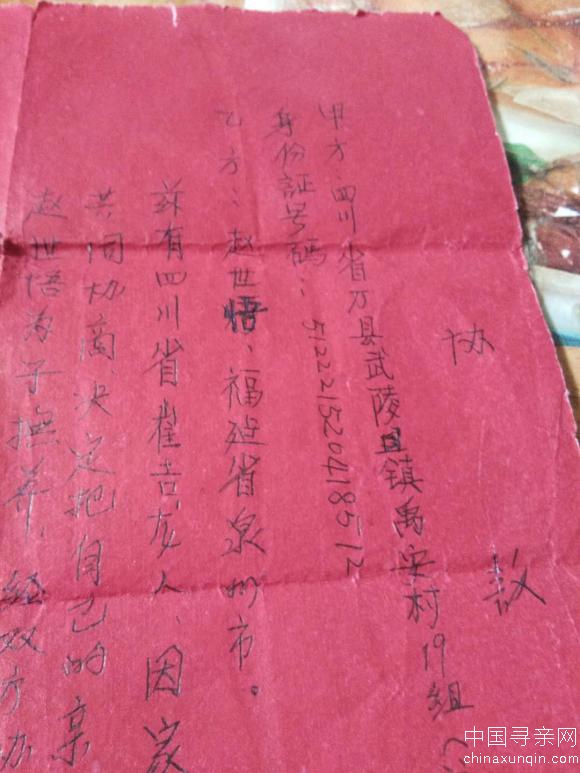 协
甲方:四川省万县武陵镇禹安村19组(
身份証号码:512221520418512
乙方:赵世悟、福建省泉州市。
兹有四川省崔吉友人、因家
共同协商、决定把自己的亲
赵世悟为子撫养、经双方协
中国寻亲网
chinaxunqin.com